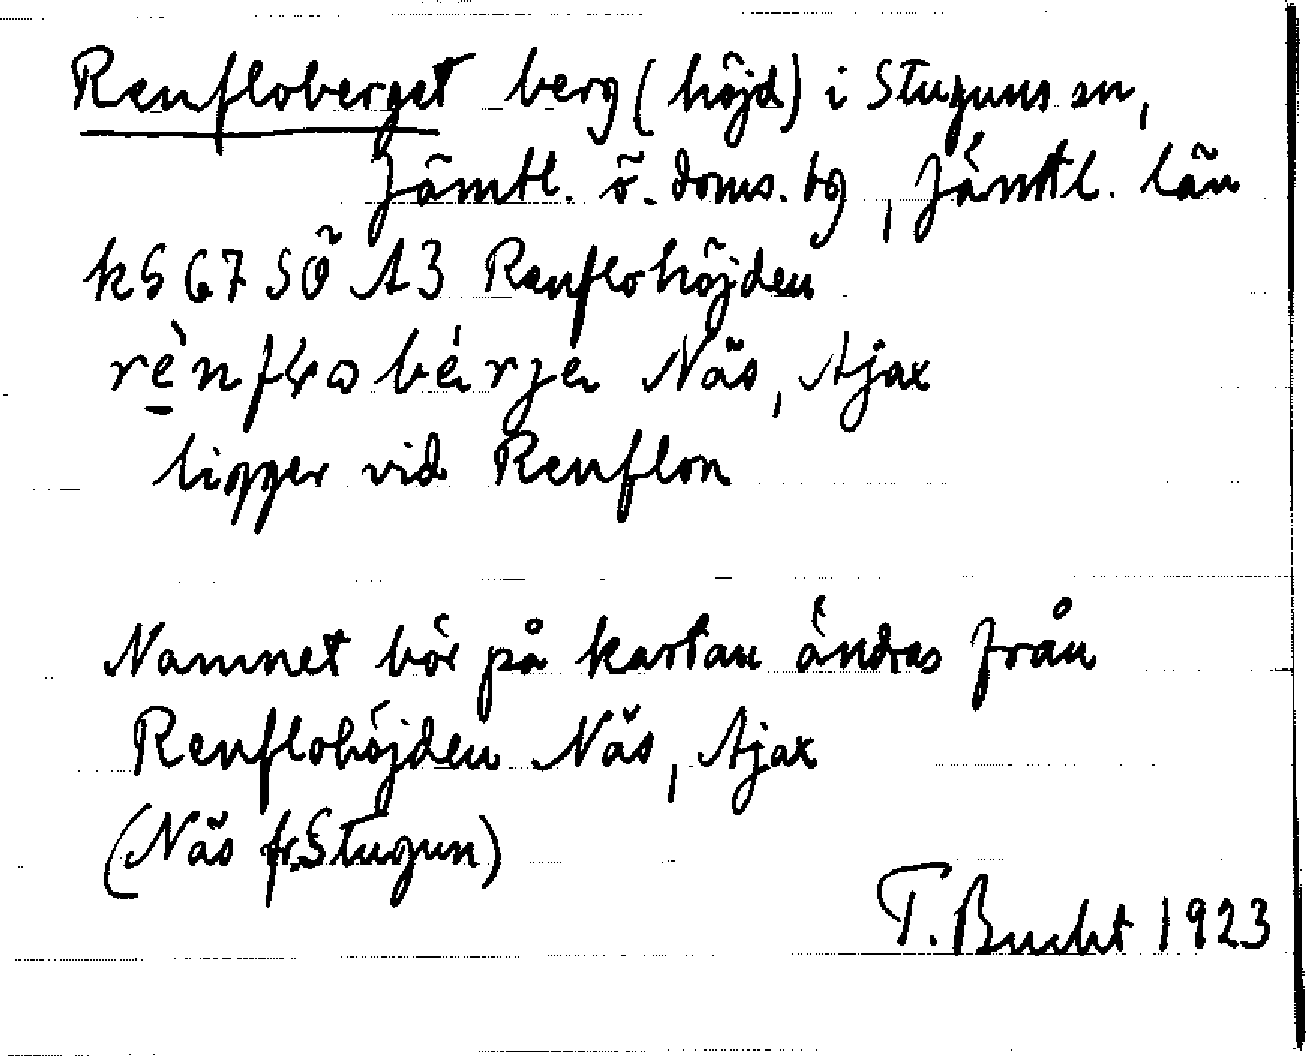 Renfloberget berg (höjd) i Stuguns sn,
Jämtl. ö. doms. tg, Jämtl. län
kS 67 SÖ A3 Renflohöjden
rè̠nfɽωbérje Näs, Ajax
ligger vid Renflon
Namnet bör på kartan ändras från
Renflohöjden Näs, Ajax
(Näs fr. Stugun)
T. Bucht 1923